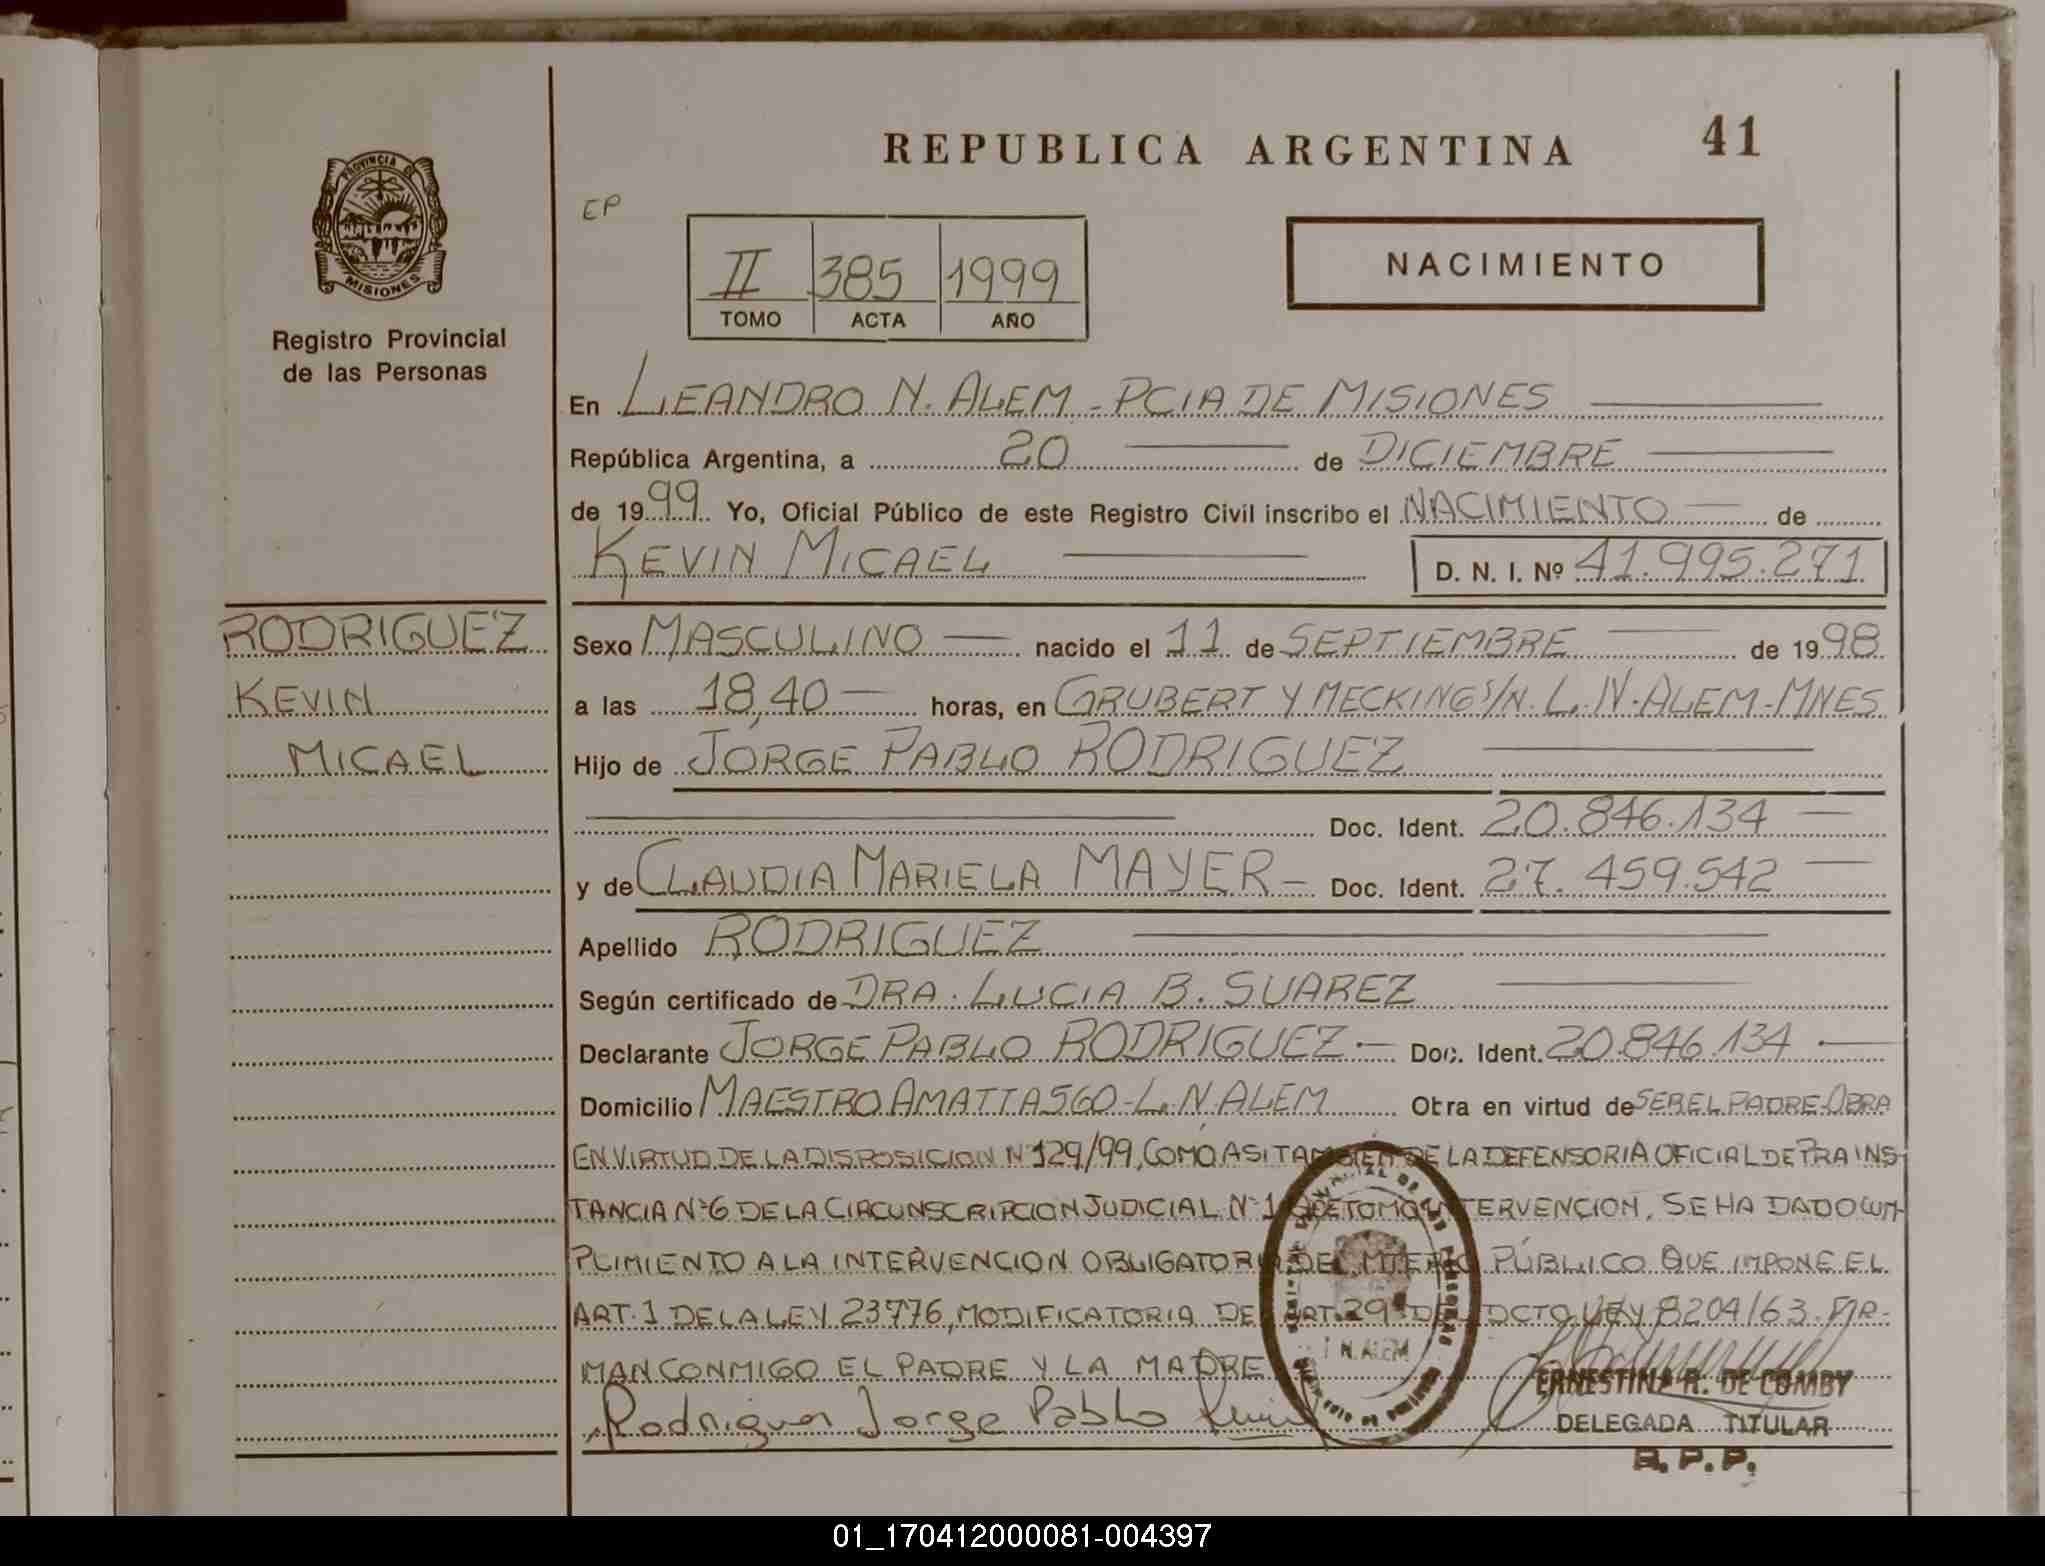 REPUBLICA ARGENTINA
41
PROVINCIA DE
MISIONES
Registro Provincial
de las Personas
EP
II 385 1999
TOMO ACTA AÑO
NACIMIENTO
En LEANDRO N. ALEM - PCIA DE MISIONES
República Argentina, a 20 de DICIEMBRE
de 1999 Yo, Oficial Público de este Registro Civil inscribo el NACIMIENTO de
KEVIN MICAEL D. N. I. Nº 41.995.271
RODRIGUEZ
KEVIN
MICAEL
Sexo MASCULINO nacido el 11 de SEPTIEMBRE de 1998
a las 18,40 horas, en GRUBERT Y MECKING S/N. L. N. ALEM - MNES
Hijo de JORGE PABLO RODRIGUEZ
Doc. Ident. 20.846.134
y de CLAUDIA MARIELA MAYER - Doc. Ident. 27.459.542
Apellido RODRIGUEZ
Según certificado de DRA. LUCIA B. SUAREZ
Declarante JORGE PABLO RODRIGUEZ.- Doc. Ident. 20.846.134
Domicilio MAESTRO AMATTA 560 - L. N. ALEM Otra en virtud de SER EL PADRE-OBRA
EN VIRTUD DE LA DISPOSICION Nº 129/99, COMO ASI TAMBIÉN DE LA DEFENSORIA OFICIAL DE PRA INS-
TANCIA Nº 6 DE LA CIRCUNSCRIPCION JUDICIAL Nº 1 QUE TOMO INTERVENCION. SE HA DADO CUM-
PLIMIENTO A LA INTERVENCION OBLIGATORIA DEL MTERIO PÚBLICO QUE IMPONE EL
ART. 1 DE LA LEY 23776, MODIFICATORIA DEL ART. 29 DEL DCTO LEY 8204/63. FIR-
MAN CONMIGO EL PADRE Y LA MADRE
Rodriguez Jorge Pablo
N. ALEM
ERNESTINA R. DE COMBY
DELEGADA TITULAR
R. P. P.
01_170412000081-004397